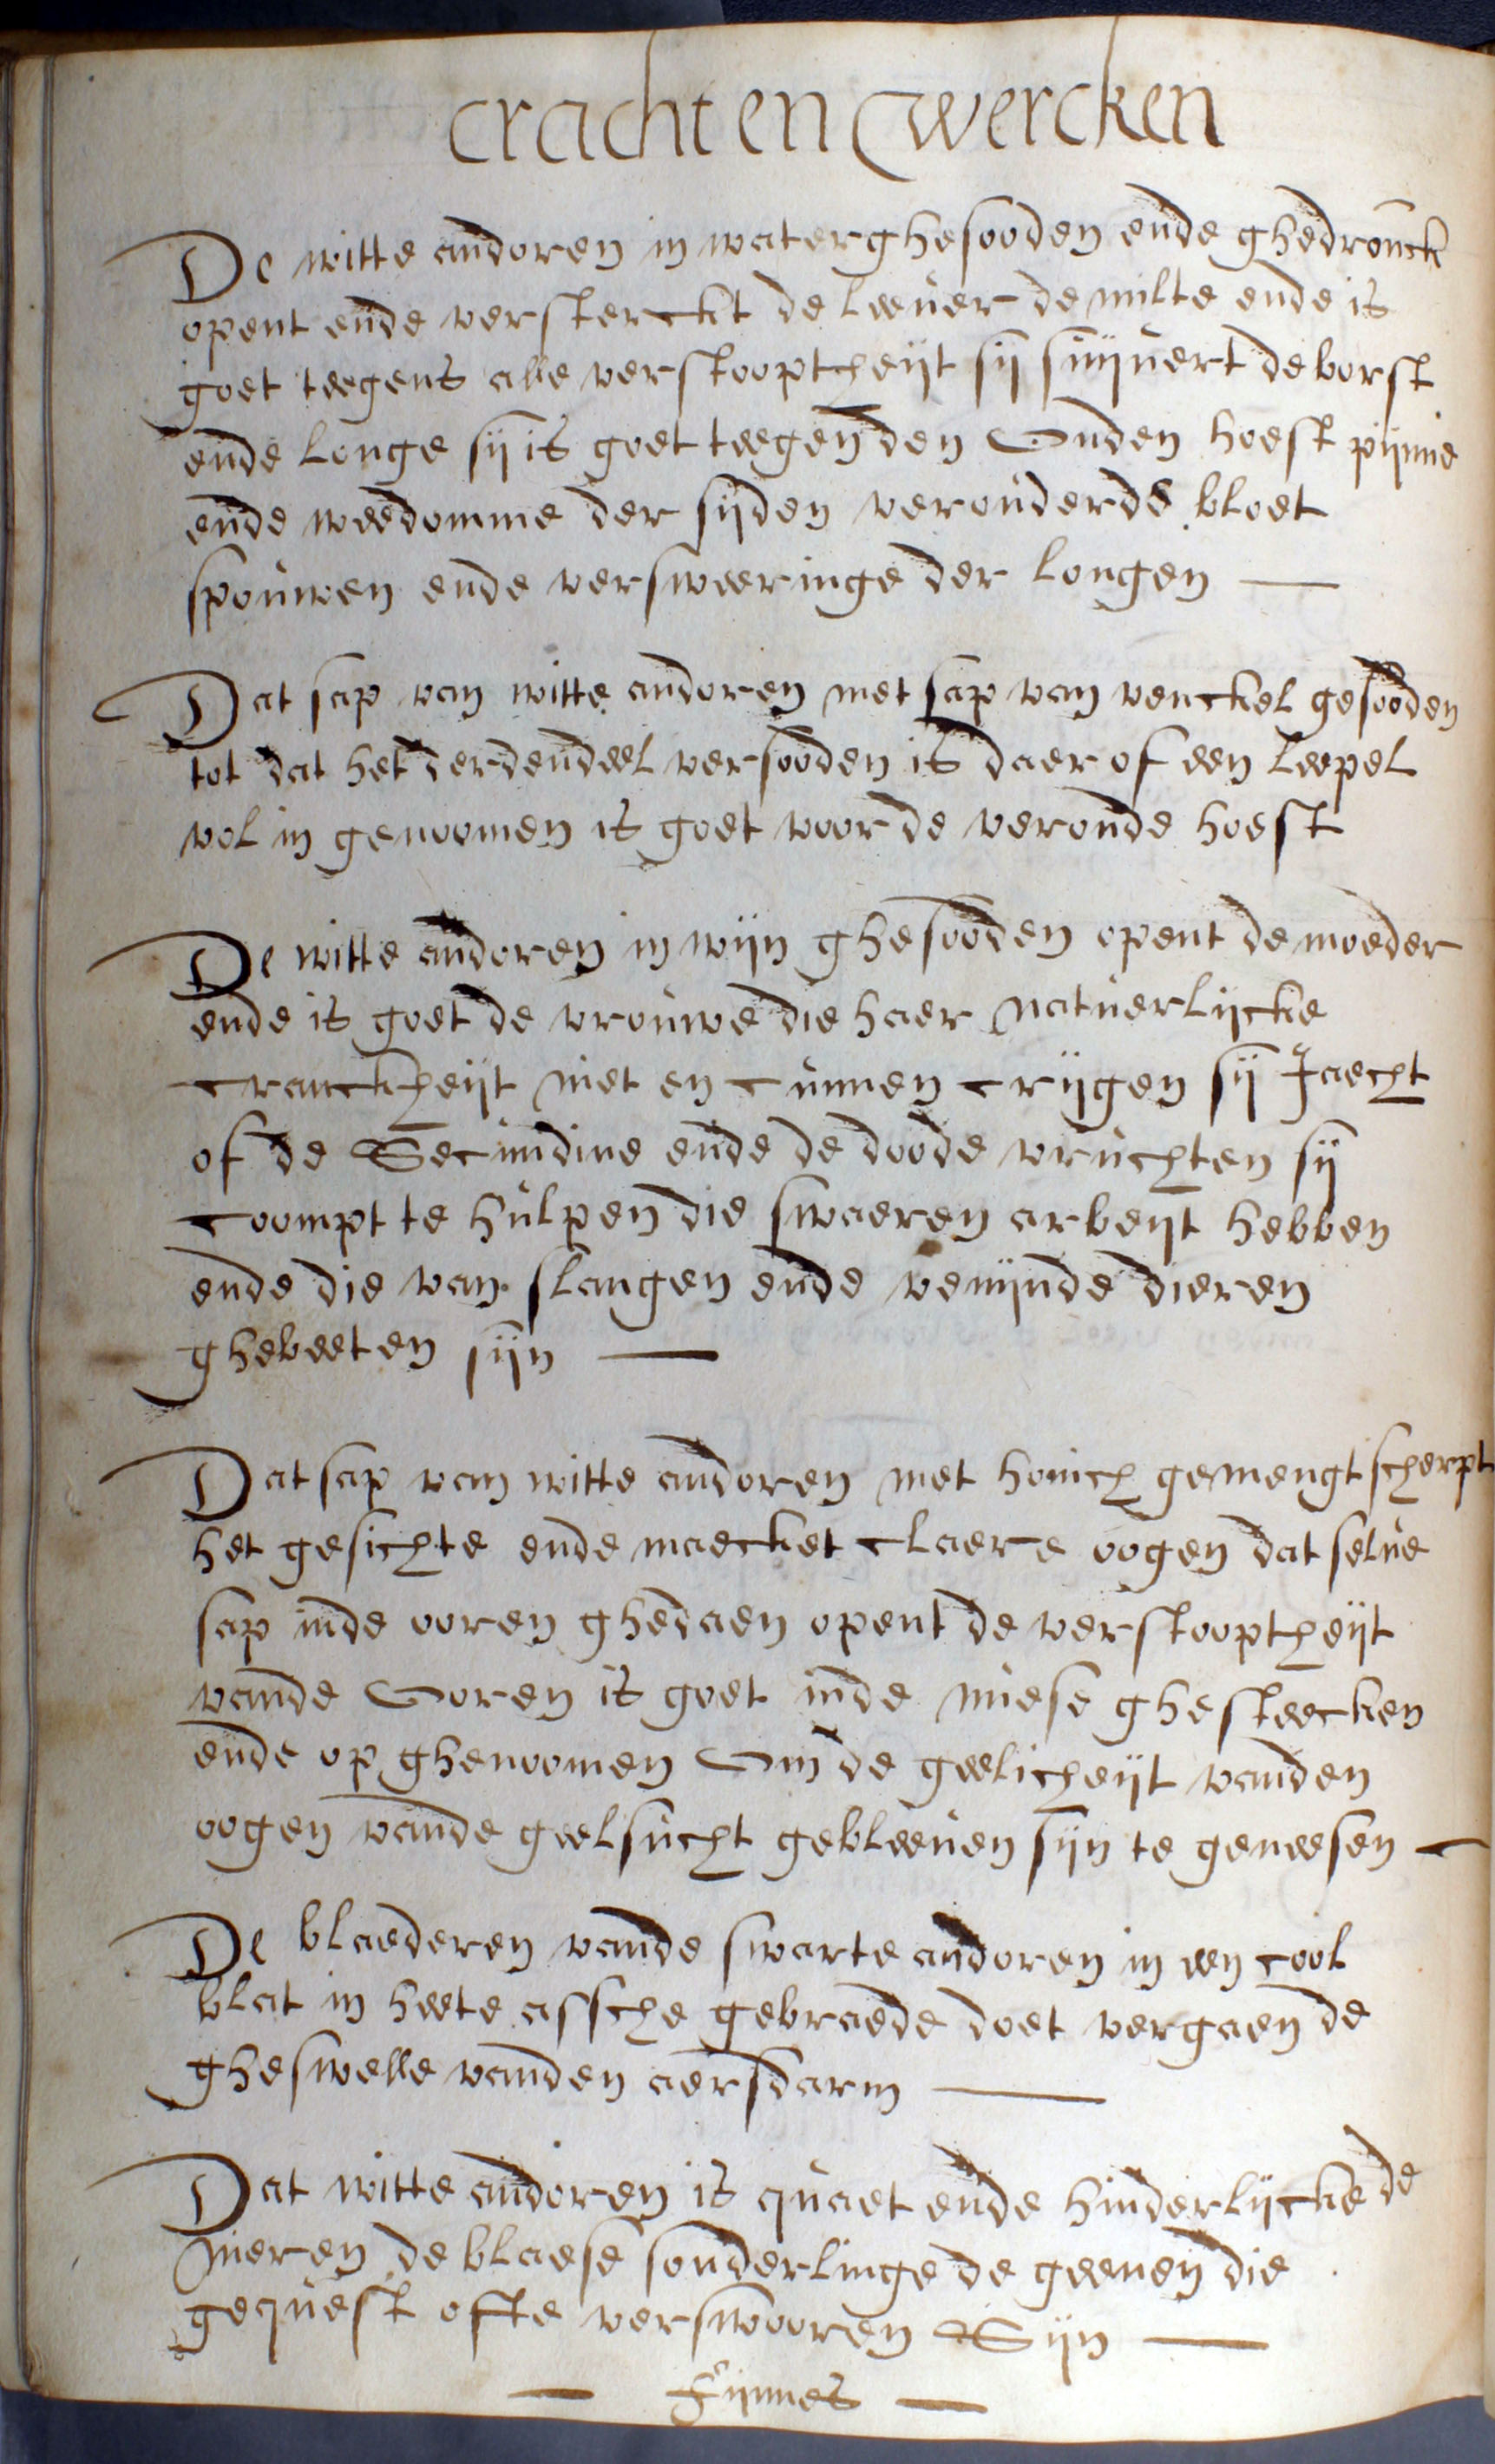 cracht en wercken
De witte andoren in water ghesooden ende ghedronck
opent ende versterckt de leever de milte ende is
goet teegens alle verstooptheijt sij suijvert de borst
ende longe sij is goet teegen den Ouden hoest pijnne
ende weedomme der sijden verouderde bloet
spouwen ende versweeringe der longen —
Dat sap van witte andoren met sap van venckel gesooden
tot dat het derdendeel versooden is daer of een leepel
vol in genoomen is goet voor de veroude hoest
De witte andoren in wijn ghesooden opent de moeder
ende is goet de vrouwe die haer natuerlijcke
cranckheijt niet en cunnen crijgen sij Jaecht
of de Secundine ende de doode vruchten sij
coompt te hulpen die swaeren arbeijt hebben
ende die van slangen ende venijnde dieren
ghebeeten sijn —
Dat sap van witte andoren met honich gemengt scherpt
het gesichte ende maecket claere oogen dat selve
sap inde ooren ghedaen opent de verstooptheijt
vande Ooren is goet inde nuese ghesteecken
ende op ghenoomen Om de geelicheijt vanden
oogen vande geelsucht gebleeven sijn te geneesen —
De blaederen vande swarte andoren in een cool
blat in heete assche gebraede doet vergaen de
gheswelle vanden aersdarm —
Dat witte andoren is quaet ende hinderlijcke de
nieren de blaese sonderlinge de geenen die
gequest ofte verswooren Sijn —
— Fijnnes —